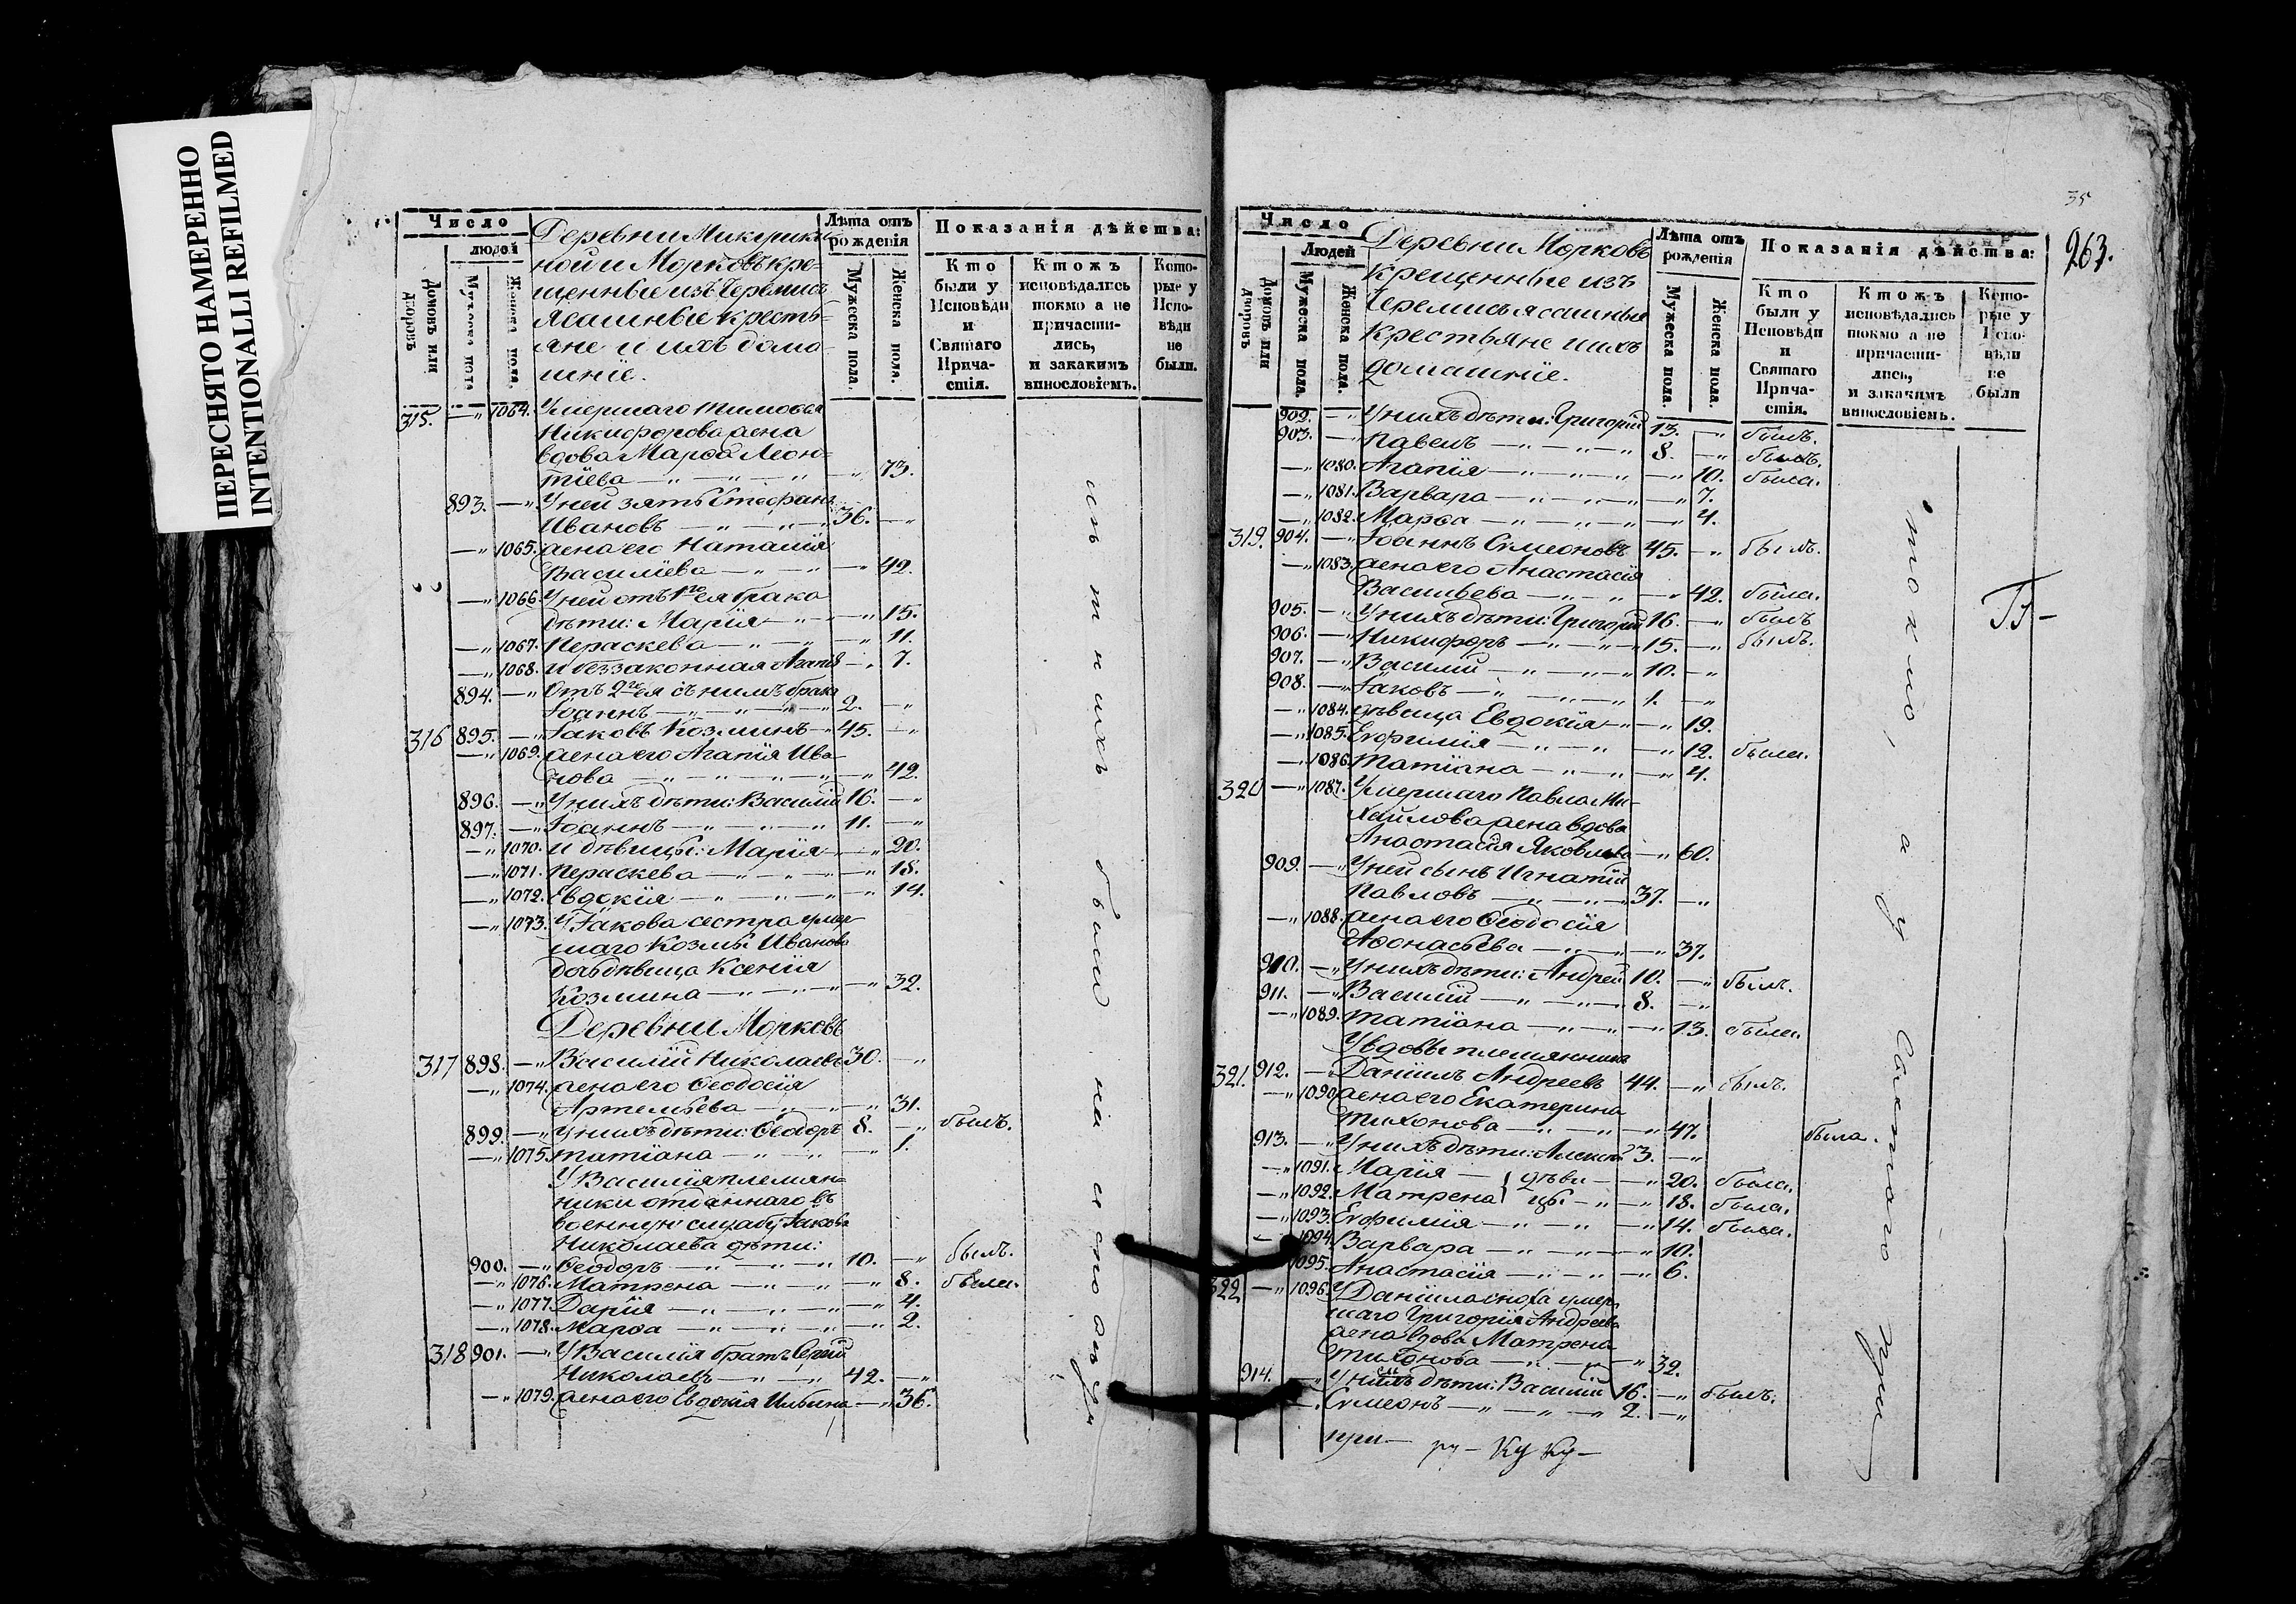 ПЕРЕСНЯТО НАМЕРЕННО
INTENTIONALLI REFILMED
Число
людей
Домовъ или дворовъ
Мужеска пола
Женска пола.
Деревни
ной и Морковъ кре-
щенные изъ Черемисъ
Ясашные кресть-
яне и ихъ дома-
шнїе.
Лѣта отъ рожденія
Мужеска пола.
Женска пола.
Показанія дѣйства:
Кто были у Исповѣди и Святаго Прича-стія.
Ктожъ исповѣдались токмо а не причасти-лись, и закакимъ винословіемъ.
Кото-рые у Испо-вѣди не были.
315. —" 1064. Умершаго Тимофея
Никифорова жена
вдова Марѳа Леон-
тїева —" —" —" 73.
893. —" У ней зять Стефанъ
Ивановъ —" —" 36. —"
—" 1065. жена его Наталїя
Василїева —" —" —" 42.
—" 1066. У ней отъ 1го ея брака
дѣти: Марїя —" —" 15.
—" 1067. Параскева —" —" —" 11.
—" 1068. и беззаконная Агапїя —" 7.
894. —" Отъ 2го ея съ нимъ брака
Іоаннъ —" —" —" 2. —"
316 895. —" Іаковъ Козминъ —" 45. —"
—" 1069. жена его Агапїя Ива-
нова —" —" —" —" 42.
896. —" У нихъ дѣти: Василїй 16. —"
897. —" Іоаннъ —" —" —" 11. —"
—" 1070. и дѣвицы: Марїя —" —" 20.
—" 1071. Параскева —" —" —" 18.
—" 1072. Евдокїя —" —" —" 14.
—" 1073. У Іакова сестра умер-
шаго Козмы Иванова
дочь дѣвица Ксенїя
Козмина —" —" —" 32.
Деревни Морковъ
317 898. —" Василїй Николаевъ 30. —"
—" 1074. жена его Ѳеодосїя
Артемьева —" —" —" 31.
899. —" У нихъ дѣти: Ѳеодоръ 8. —" былъ.
—" 1075. Татїана —" —" —" 1.
У Василїя племян-
ники отданнаго въ
военную службу Іакова
Николаева дѣти:
900. —" Ѳеодоръ —" —" —" 10. —" былъ.
—" 1076. Матрена —" —" —" 8. была.
—" 1077. Дарїя —" —" —" 4.
—" 1078. Марѳа —" —" —" 2.
318 901. —" У Василїя братъ Сергїй
Николаевъ —" —" 42. —"
—" 1079. жена его Евдокїя Ильина —" 36.
35
263.
Число
Людей
Домовъ или дворовъ
Мужеска пола.
Женска пола.
Деревни Морковъ
крещенные изъ
Черемисъ ясашные
крестьяне и ихъ
домашнїе.
Лѣта отъ рожденія
Мужеска пола.
Женска пола.
Показанія дѣйства:
Кто были у Исповѣди и Святаго Прича-стія.
Ктожъ исповѣдались токмо а не причасти-лись, и закакимъ винословіемъ.
Кото-рые у Испо-вѣди не были
902. —" У нихъ дѣти: Григорїй 13. —" былъ.
903. —" Павелъ —" —" —" 8. —" былъ.
—" 1080. Агапїя —" —" —" 10. была.
—" 1081. Варвара —" —" —" 7.
—" 1082. Марѳа —" —" —" 4.
319. 904. —" Іоаннъ Симеоновъ 45. —" былъ.
—" 1083. жена его Анастасїя
Васильева —" —" —" 42. была.
905. —" У нихъ дѣти: Григорїй 16. —" былъ
906. —" Никифоръ —" —" 15. —" былъ.
907. —" Василїй —" —" —" 10. —"
908. —" Іаковъ —" —" 1. —"
—" 1084. дѣвица Евдокїя —" —" 19.
—" 1085. Евфимїя —" —" —" 12. была.
—" 1086. Татїана —" —" —" 4.
320 —" 1087. Умершаго Павла Ми-
хайлова жена вдова
Анастасїя Яковлева —" 60.
909. —" У ней сынъ Игнатїй
Павловъ —" —" 37. —"
—" 1088. жена его Ѳеодосїя
Аѳонасьева —" —" —" 37.
910. —" У нихъ дѣти: Андрей 10. —" былъ.
911. —" Василїй —" —" 8. —"
—" 1089. Татїана —" —" —" 13. была.
У вдовы племянникъ
321. 912. — Данїилъ Андреевъ 44. —" былъ.
—" 1090. жена его Екатерина
Тихонова —" —" —" 47. была.
913. —" У нихъ дѣти: 3. —"
—" 1091. Марїя — } дѣви- —" 20. была.
—" 1092. Матрена } цы. —" —" 18. была.
—" 1093. Евфимїя —" —" —" 14. была.
—" 1094. Варвара —" —" —" 10.
1095. Анастасїя —" —" —" 6.
322 —" 1096. У Данїила сноха умер-
шаго Григорїя Андреева
жена вдова Матрена
Тихонова —" —" —" 32.
914. —" У ней дѣти: Василїй 16. —" былъ.
—" Симеонъ —" —" —" 2. —"